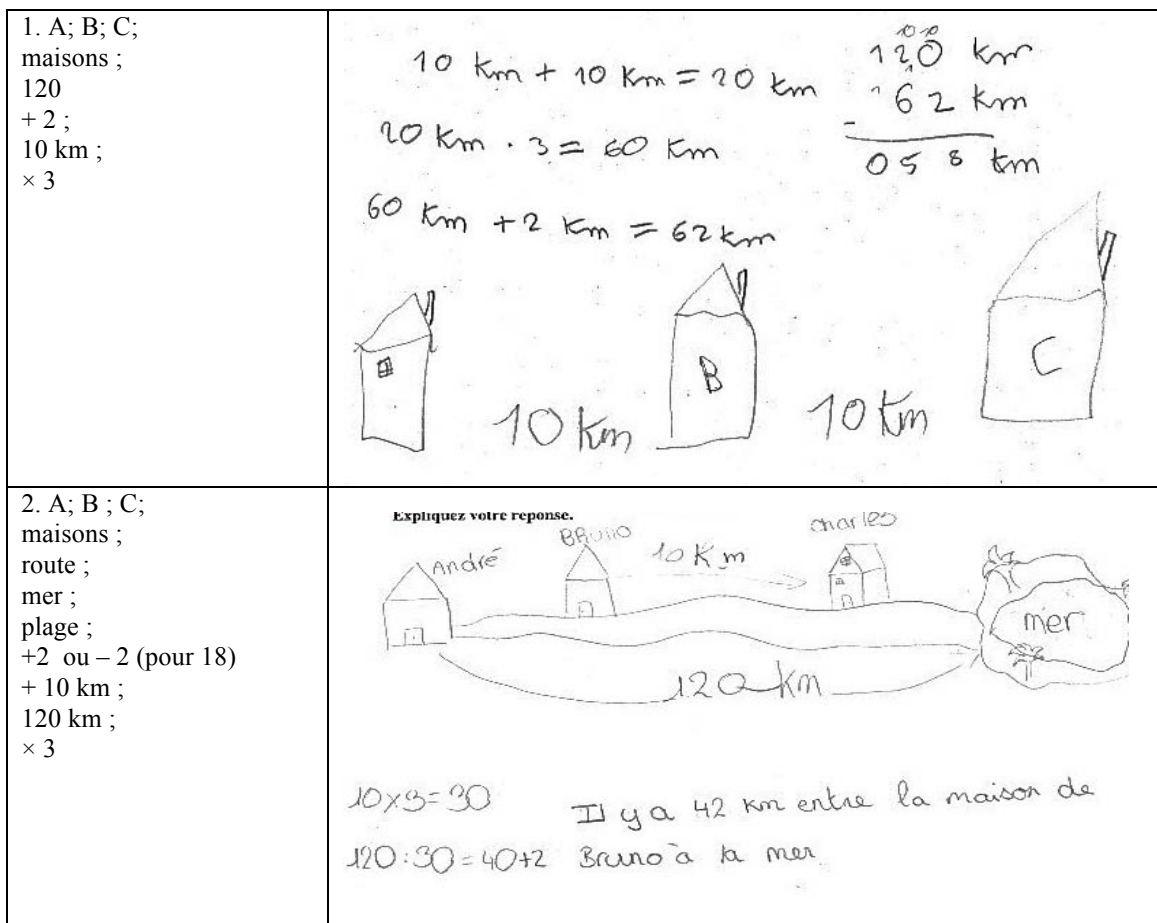 1. A; B; C;
maisons ;
120
+ 2 ;
10 km ;
× 3
10 km + 10 km = 20 km
20 km . 3 = 60 km
60 km + 2 km = 62 km
10 10
120 km
1 1
- 62 km
058 km
B
C
10 km
10 km
2. A; B ; C;
maisons ;
route ;
mer ;
plage ;
+2 ou – 2 (pour 18)
+ 10 km ;
120 km ;
× 3
Expliquez votre reponse.
André
BRUNO
10 Km
charles
mer
120 km
10x3=30
120:30=40+2
Il y a 42 km entre la maison de
Bruno à la mer